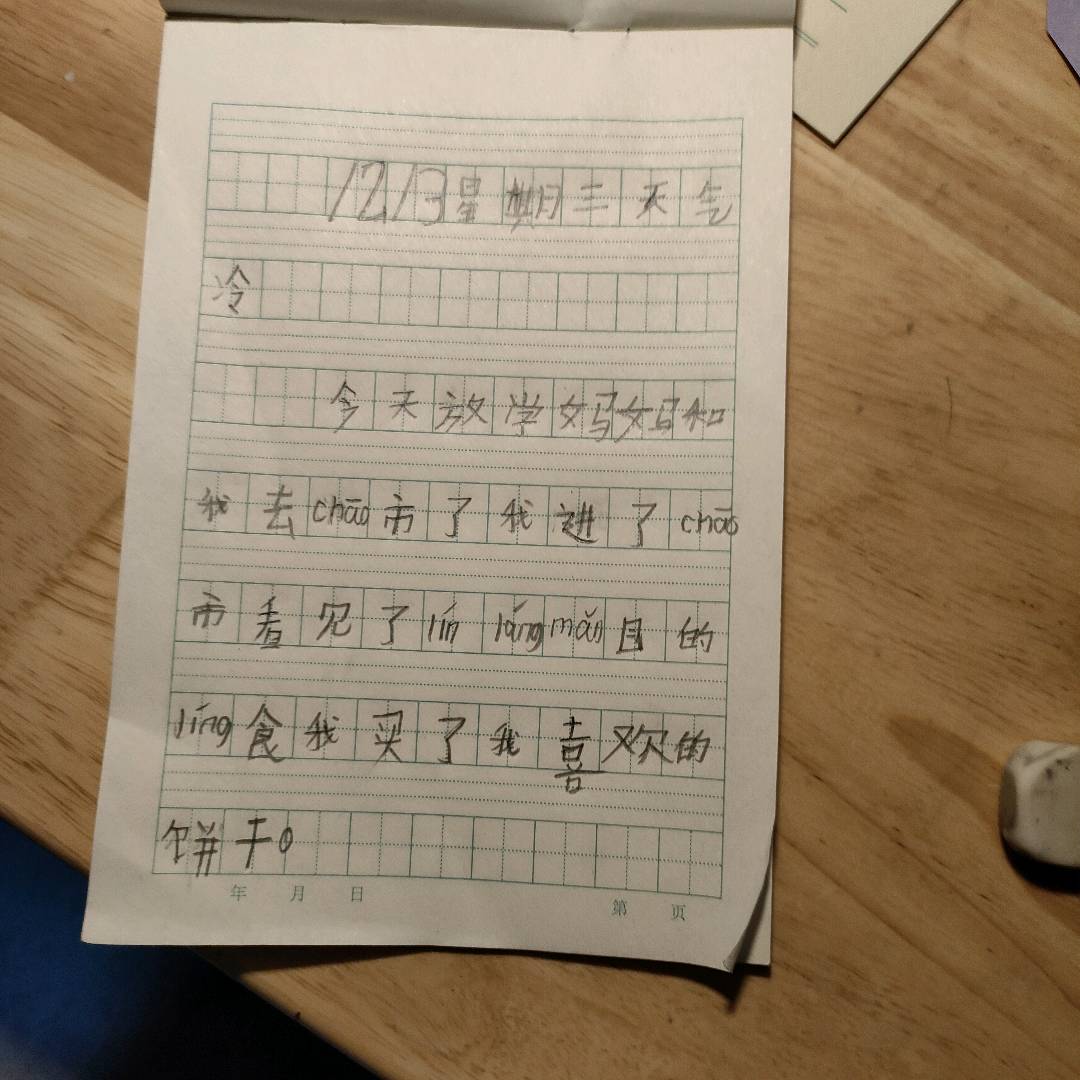 1213星期三天气
冷
今天放学妈妈和
我去chāo市了我进了chāo
市看见了lín láng mǎn目的
líng食我买了我喜欢的
饼干。
年 月 日 第 页